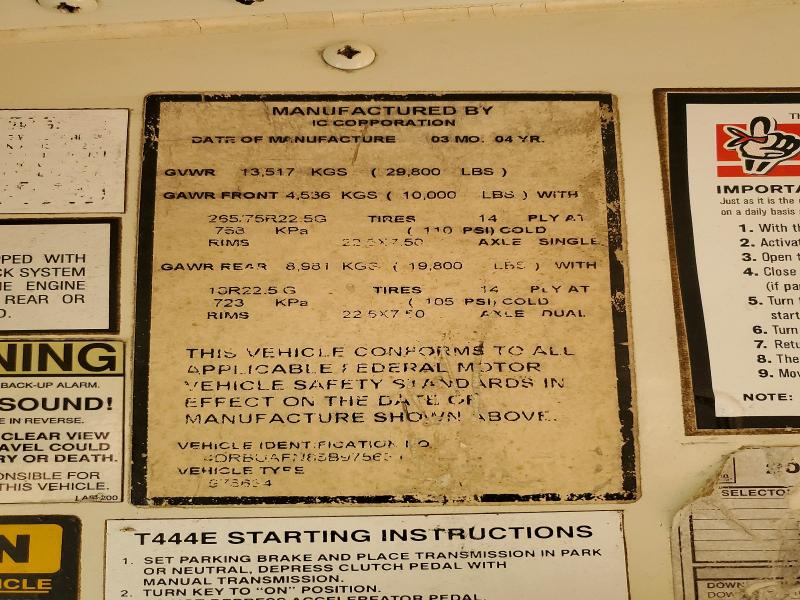 MANUFACTURED BY
IC CORPORATION
DATE OF MANUFACTURE 03 MO. 04 YR.
GVWR 13,517 KGS ( 29,800 LBS )
GAWR FRONT 4,536 KGS ( 10,000 LBS ) WITH
265/75R22.5G TIRES 14 PLY AT
758 KPa ( 110 PSI) COLD
RIMS 22.5X7.50 AXLE SINGLE
GAWR REAR 8,981 KGS ( 19,800 LBS ) WITH
10R22.5G TIRES 14 PLY AT
723 KPa ( 105 PSI) COLD
RIMS 22.5X7.50 AXLE DUAL
THIS VEHICLE CONFORMS TO ALL
APPLICABLE FEDERAL MOTOR
VEHICLE SAFETY STANDARDS IN
EFFECT ON THE DATE OF
MANUFACTURE SHOWN ABOVE.
VEHICLE IDENTIFICATION NO.
VEHICLE TYPE
PPED WITH
CK SYSTEM
HE ENGINE
REAR OR
D.
NING
BACK-UP ALARM.
SOUND!
E IN REVERSE.
CLEAR VIEW
AVEL COULD
RY OR DEATH.
ONSIBLE FOR
THIS VEHICLE.
N
HICLE
T444E STARTING INSTRUCTIONS
1. SET PARKING BRAKE AND PLACE TRANSMISSION IN PARK
OR NEUTRAL, DEPRESS CLUTCH PEDAL WITH
MANUAL TRANSMISSION.
2. TURN KEY TO "ON" POSITION.
DEPRESS ACCELERATOR PEDAL
TH
IMPORTA
Just as it is the
on a daily basis
1. With th
2. Activat
3. Open t
4. Close
(if pa
5. Turn
start
6. Turn
7. Retu
8. The
9. Mov
NOTE:
SELECTO
DOWN
DOWN